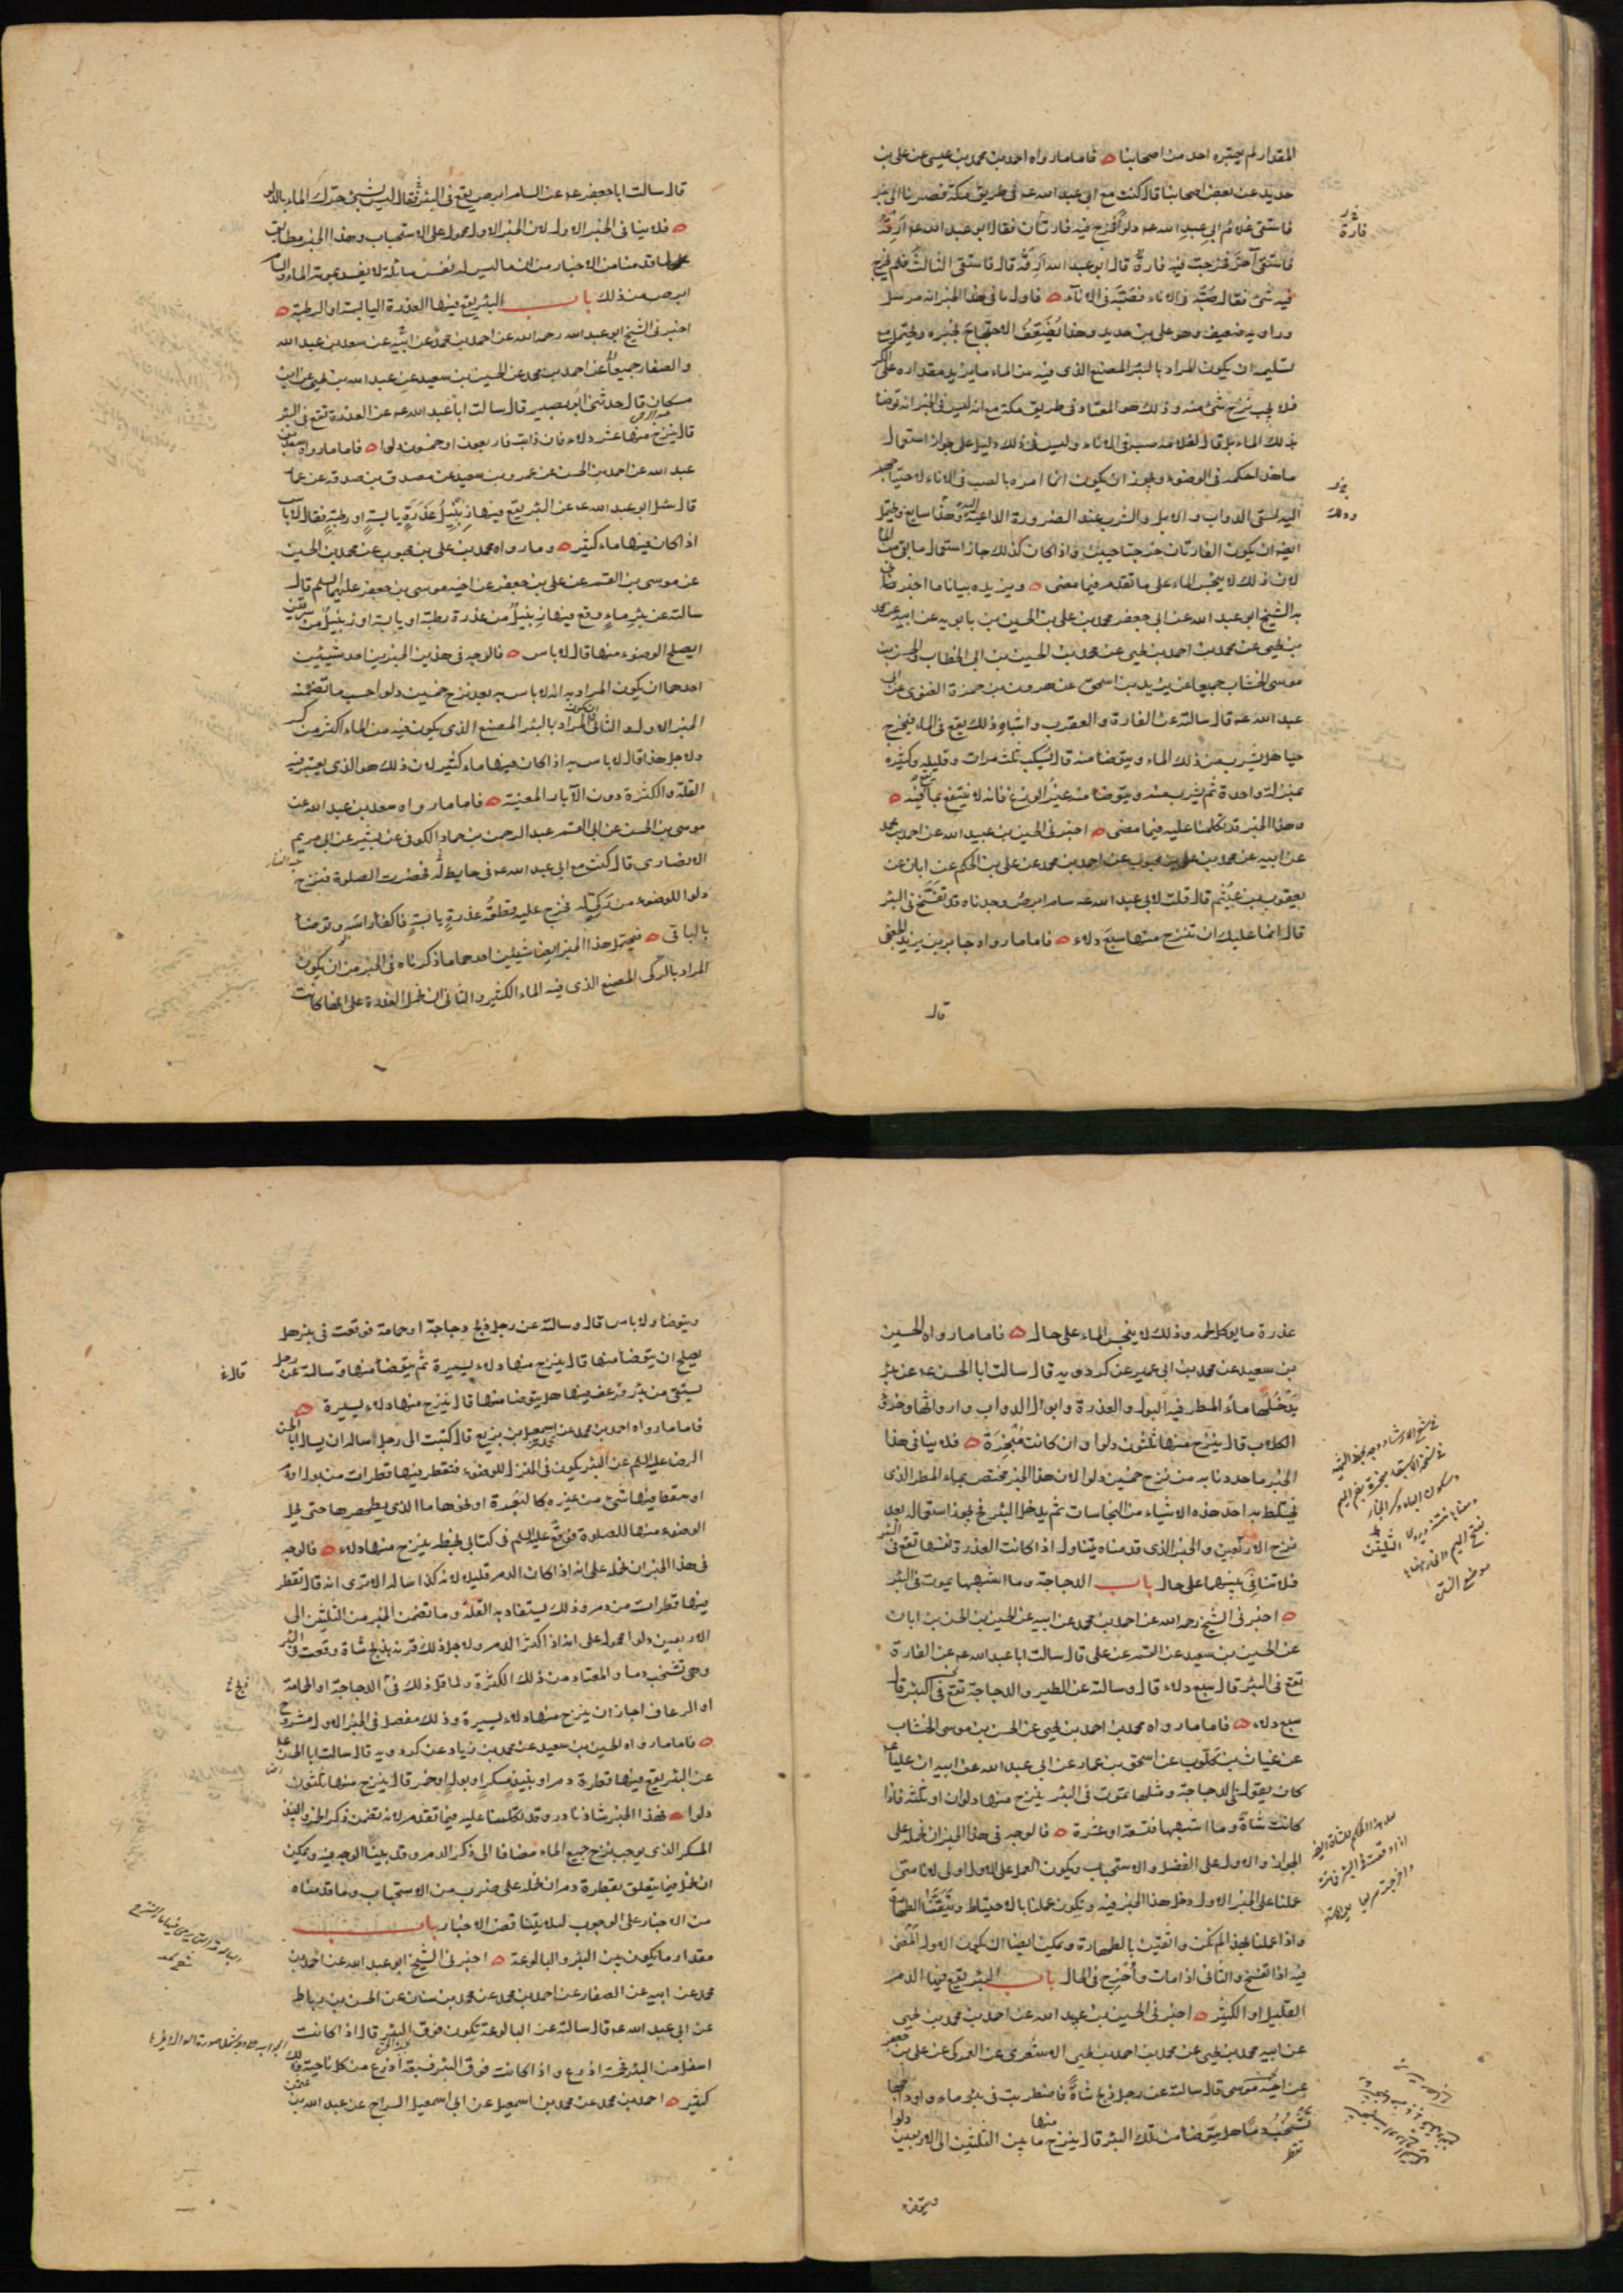 المقدار لم يعتبره احد من اصحابنا فاما ما رواه احمد بن محمد بن عيسى عن على بن
حديد عن بعض اصحابنا قال كنت مع ابى عبد الله عه فى طريق مكة فصرنا الى بئر
فاستقى غلام ابى عبد الله عه دلوا فخرج فيه فارتان فقال ابو عبد الله عه ارقه
فاستقى آخر فخرجت فيه فارة قال ابو عبد الله ارقه قال فاستقى الثالث فلم يخرج
فيه شئ فقال صبه فى الاناء فصبه فى الاناء فاول ما فى هذا الخبر انه مرسل
وراويه ضعيف وهو على بن حديد وهذا يضعف الاحتجاج بخبره ويحتمل مع
تسليمه ان يكون المراد بالبئر المصنع الذى فيه من الماء ما يزيد مقداره على الكر
فلا يجب نزح شئ منه وذلك هو المعتاد فى طريق مكة مع انه ليس فى الخبر انه توضا
بذلك الماء بل قال لغلامه صبه فى الاناء وليس فى ذلك دليل على جواز استعمال
ما هذا حكمه فى الوضوء ويجوز ان يكون انما امره بالصب فى الاناء لاحتياجهم
اليه لسقى الدواب والابل والشرب عند الضرورة الداعية اليه وهذا سايغ ويحتمل
ايضا ان يكون الفارتان خرجتا حيتين واذا كان كذلك جاز استعمال ما بقى من الماء
لان ذلك لا ينجس الماء على ما تقدم فيما مضى ويزيده بيانا ما اخبرنى
به الشيخ ابو عبد الله عن ابى جعفر محمد بن على بن الحسين بن بابويه عن ابيه عن محمد
بن يحيى عن محمد بن احمد بن يحيى عن محمد بن الحسين بن ابى الخطاب والحسن بن
موسى الخشاب جميعا عن يزيد بن اسحق عن هرون بن حمزة الغنوى عن ابى
عبد الله عه قال سالته عن الفارة والعقرب واشباه ذلك يقع فى الماء فيخرج
حيا هل يشرب من ذلك الماء ويتوضا منه قال يسكب ثلث مرات وقليله وكثيره
بمنزلة واحدة ثم يشرب منه ويتوضا منه غير الوزغ فانه لا ينتفع بما يقع فيه
وهذا الخبر قد تكلمنا عليه فيما مضى اخبرنى الحسين بن عبيد الله عن احمد بن محمد
عن ابيه عن محمد بن على بن محبوب عن احمد بن محمد عن على بن الحكم عن ابان عن
يعقوب بن عثيم قال قلت لابى عبد الله عه سام ابرص وجدناه قد تفسخ فى البئر
قال انما عليك ان تنزح منها سبع دلاء فاما ما رواه جابر بن يزيد الجعفى
قال
قال سالت ابا جعفر عه عن السام ابرص يقع فى البئر فقال ليس بشئ حرك الماء بالدلو
فلا ينافى الخبر الاول لان الخبر الاول محمول على الاستحباب وهذا الخبر مطابق
لما قدمنا من الاخبار من ان ما ليس له نفس سائلة لا يفسد بموته الماء والسام
ابرص من ذلك باب البئر يقع فيها العذرة اليابسة او الرطبة
اخبرنى الشيخ ابو عبد الله رحمه الله عن احمد بن محمد عن ابيه عن سعد بن عبد الله
والصفار جميعا عن احمد بن محمد عن الحسين بن سعيد عن عبد الله بن يحيى عن ابن
مسكان قال حدثنى ابو بصير قال سالت ابا عبد الله عه عن العذرة تقع فى البئر
قال ينزح منها عشر دلاء فان ذابت فاربعون او خمسون دلوا فاما ما رواه سعد بن
عبد الله عن احمد بن الحسن عن عمرو بن سعيد عن مصدق بن صدقه عن عمار
قال سئل ابو عبد الله عه عن البئر يقع فيها زبيل عذرة يابسة او رطبة فقال لا باس
اذا كان فيها ماء كثير وما رواه محمد بن على بن محبوب عن محمد بن الحسين
عن موسى بن القسم عن على بن جعفر عن اخيه موسى بن جعفر عليهما السلم قال
سالته عن بئر ماء وقع فيها زبيل من عذرة رطبة او يابسة او زبيل من سرقين
ايصلح الوضوء منها قال لا باس فالوجه فى هذين الخبرين احد شيئين
احدهما ان يكون المراد به انه لا باس به بعد نزح خمسين دلوا حسب ما تضمنه
الخبر الاول والثانى ان يكون المراد بالبئر المصنع الذى يكون فيه من الماء اكثر من كر
ولاجل هذا قال لا باس به اذا كان فيها ماء كثير لان ذلك هو الذى يعتبر فيه
القلة والكثرة دون الآبار المعينة فاما ما رواه سعد بن عبد الله عن
موسى بن الحسن عن ابى القسم عبد الرحمن بن حماد الكوفى عن بشير عن ابى مريم
الانصارى قال كنت مع ابى عبد الله عه فى حايط له فحضرت الصلوة فنزح
دلوا للوضوء من ركى له فخرج عليه قطعة عذرة يابسة فاكفا راسه وتوضا
بالباقى فيحتمل هذا الخبر ايضا شيئين احدهما ما ذكرناه فى الخبر من ان يكون
المراد بالركى المصنع الذى فيه الماء الكثير والثانى ان نحمل العذرة على انها كانت
عذرة ما يوكل لحمه وذلك لا ينجس الماء على حال فاما ما رواه الحسين
بن سعيد عن محمد بن ابى عمير عن كردويه قال سالت ابا الحسن عه عن بئر
يدخلها ماء المطر فيه البول والعذرة وابوال الدواب وارواثها وخرؤ
الكلاب قال ينزح منها ثلثون دلوا وان كانت مبخرة فلا ينافى هذا
الخبر ما حددنا به من نزح خمسين دلوا لان هذا الخبر مختص بماء المطر الذى
يختلط به احد هذه الاشياء من النجاسات ثم يدخل البئر فيجوز استعماله بعد
نزح الاربعين والخبر الذى قدمناه يتناول اذا كانت العذرة نفسها تقع فى البئر
فلا تنافى بينهما على حال باب الدجاجة وما اشبهها يموت فى البئر
اخبرنى الشيخ رحمه الله عن احمد بن محمد عن ابيه عن الحسين بن الحسن بن ابان
عن الحسين بن سعيد عن القسم عن على قال سالت ابا عبد الله عه عن الفارة
تقع فى البئر قال سبع دلاء قال وسالته عن الطير والدجاجة تقع فى البئر قال
سبع دلاء فاما ما رواه محمد بن احمد بن يحيى عن الحسن بن موسى الخشاب
عن غياث بن كلوب عن اسحق بن عمار عن ابى عبد الله عن ابيه ان عليا عه
كان يقول الدجاجة ومثلها تموت فى البئر ينزح منها دلوان او ثلثة فاذا
كانت شاة وما اشبهها فتسعة او عشرة فالوجه فى هذا الخبر ان نحمله على
الجواز والاول على الفضل والاستحباب ويكون العمل على الاول اولى لانا متى
عملنا على الخبر الاول دخل هذا الخبر فيه ونكون عملنا بالاحتياط وتيقنا الطهارة
واذا عملنا بهذا لم نكن واثقين بالطهارة ويمكن ايضا ان يكون الاول المعنى
فيه اذا تفسخ والثانى اذا مات واخرج فى الحال باب البئر يقع فيها الدم
القليل او الكثير اخبرنى الحسين بن عبيد الله عن احمد بن محمد بن يحيى
عن ابيه محمد بن يحيى عن محمد بن احمد بن يحيى الاشعرى عن العمركى عن على بن جعفر
عن اخيه موسى قال سالته عن رجل ذبح شاة فاضطربت فى بئر ماء واوداجها
تشخب دما هل يتوضا من تلك البئر قال ينزح منها ما بين الثلثين الى الاربعين دلوا
ويتوضا
ويتوضا ولا باس قال وسالته عن رجل ذبح دجاجة او حمامة فوقعت فى بئر هل
يصلح ان يتوضا منها قال ينزح منها دلاء يسيرة ثم يتوضا منها وسالته عن رجل
يستقى من بئر فرعف فيها هل يتوضا منها قال ينزح منها دلاء يسيرة
فاما ما رواه احمد بن محمد عن محمد بن اسمعيل بن بزيع قال كتبت الى رجل اساله ان يسال ابا الحسن
الرضا عليه السلم عن البئر يكون فى المنزل للوضوء فتقطر فيها قطرات من بول او دم
او يسقط فيها شئ من غيره كالبعرة او نحوها ما الذى يطهرها حتى يحل
الوضوء منها للصلوة فوقع عليه السلم فى كتابى بخطه ينزح منها دلاء فالوجه
فى هذا الخبر ان نحمله على انه اذا كان الدم قليلا لانه كذا ساله الا ترى انه قال تقطر
فيها قطرات من دم وذلك يستفاد به القلة وما تضمن الخبر من الثلثين الى
الاربعين دلوا محمول على انه اذا اكثر الدم ولاجل ذلك قرنه بذبح شاة وقعت فى البئر
وهى تشخب دما والمعتاد من ذلك الكثرة ولما قل ذلك فى الدجاجة او الحمامة
او الرعاف اجاز ان ينزح منها دلاء يسيرة وذلك مفصل فى الخبر الاول مشروح
فاما ما رواه الحسين بن سعيد عن محمد بن زياد عن كردويه قال سالت ابا الحسن عه
عن البئر يقع فيها قطرة دم او نبيذ مسكر او بول او خمر قال ينزح منها ثلثون
دلوا فهذا الخبر شاذ نادر وقد تكلمنا عليه فيما تقدم لانه تضمن ذكر الخمر والنبيذ
المسكر الذى يوجب نزح جميع الماء مضافا الى ذكر الدم وقد بينا الوجه فيه ويمكن
ان نحمل فيما يتعلق بقطرة دم ان نحمله على ضرب من الاستحباب وما قدمناه
من الاخبار على الوجوب ليلا يتناقض الاخبار باب
مقدار ما يكون بين البئر والبالوعة اخبرنى الشيخ ابو عبد الله عن احمد بن
محمد عن ابيه عن الصفار عن احمد بن محمد عن محمد بن سنان عن الحسن بن رباط
عن ابى عبد الله عه قال سالته عن البالوعة تكون فوق البئر قال اذا كانت
اسفل من البئر فخمسة اذرع واذا كانت فوق البئر فسبعة اذرع من كل ناحية وذلك
كثير احمد بن محمد عن محمد بن اسمعيل عن ابى اسمعيل السراج عن عبد الله بن عثمن